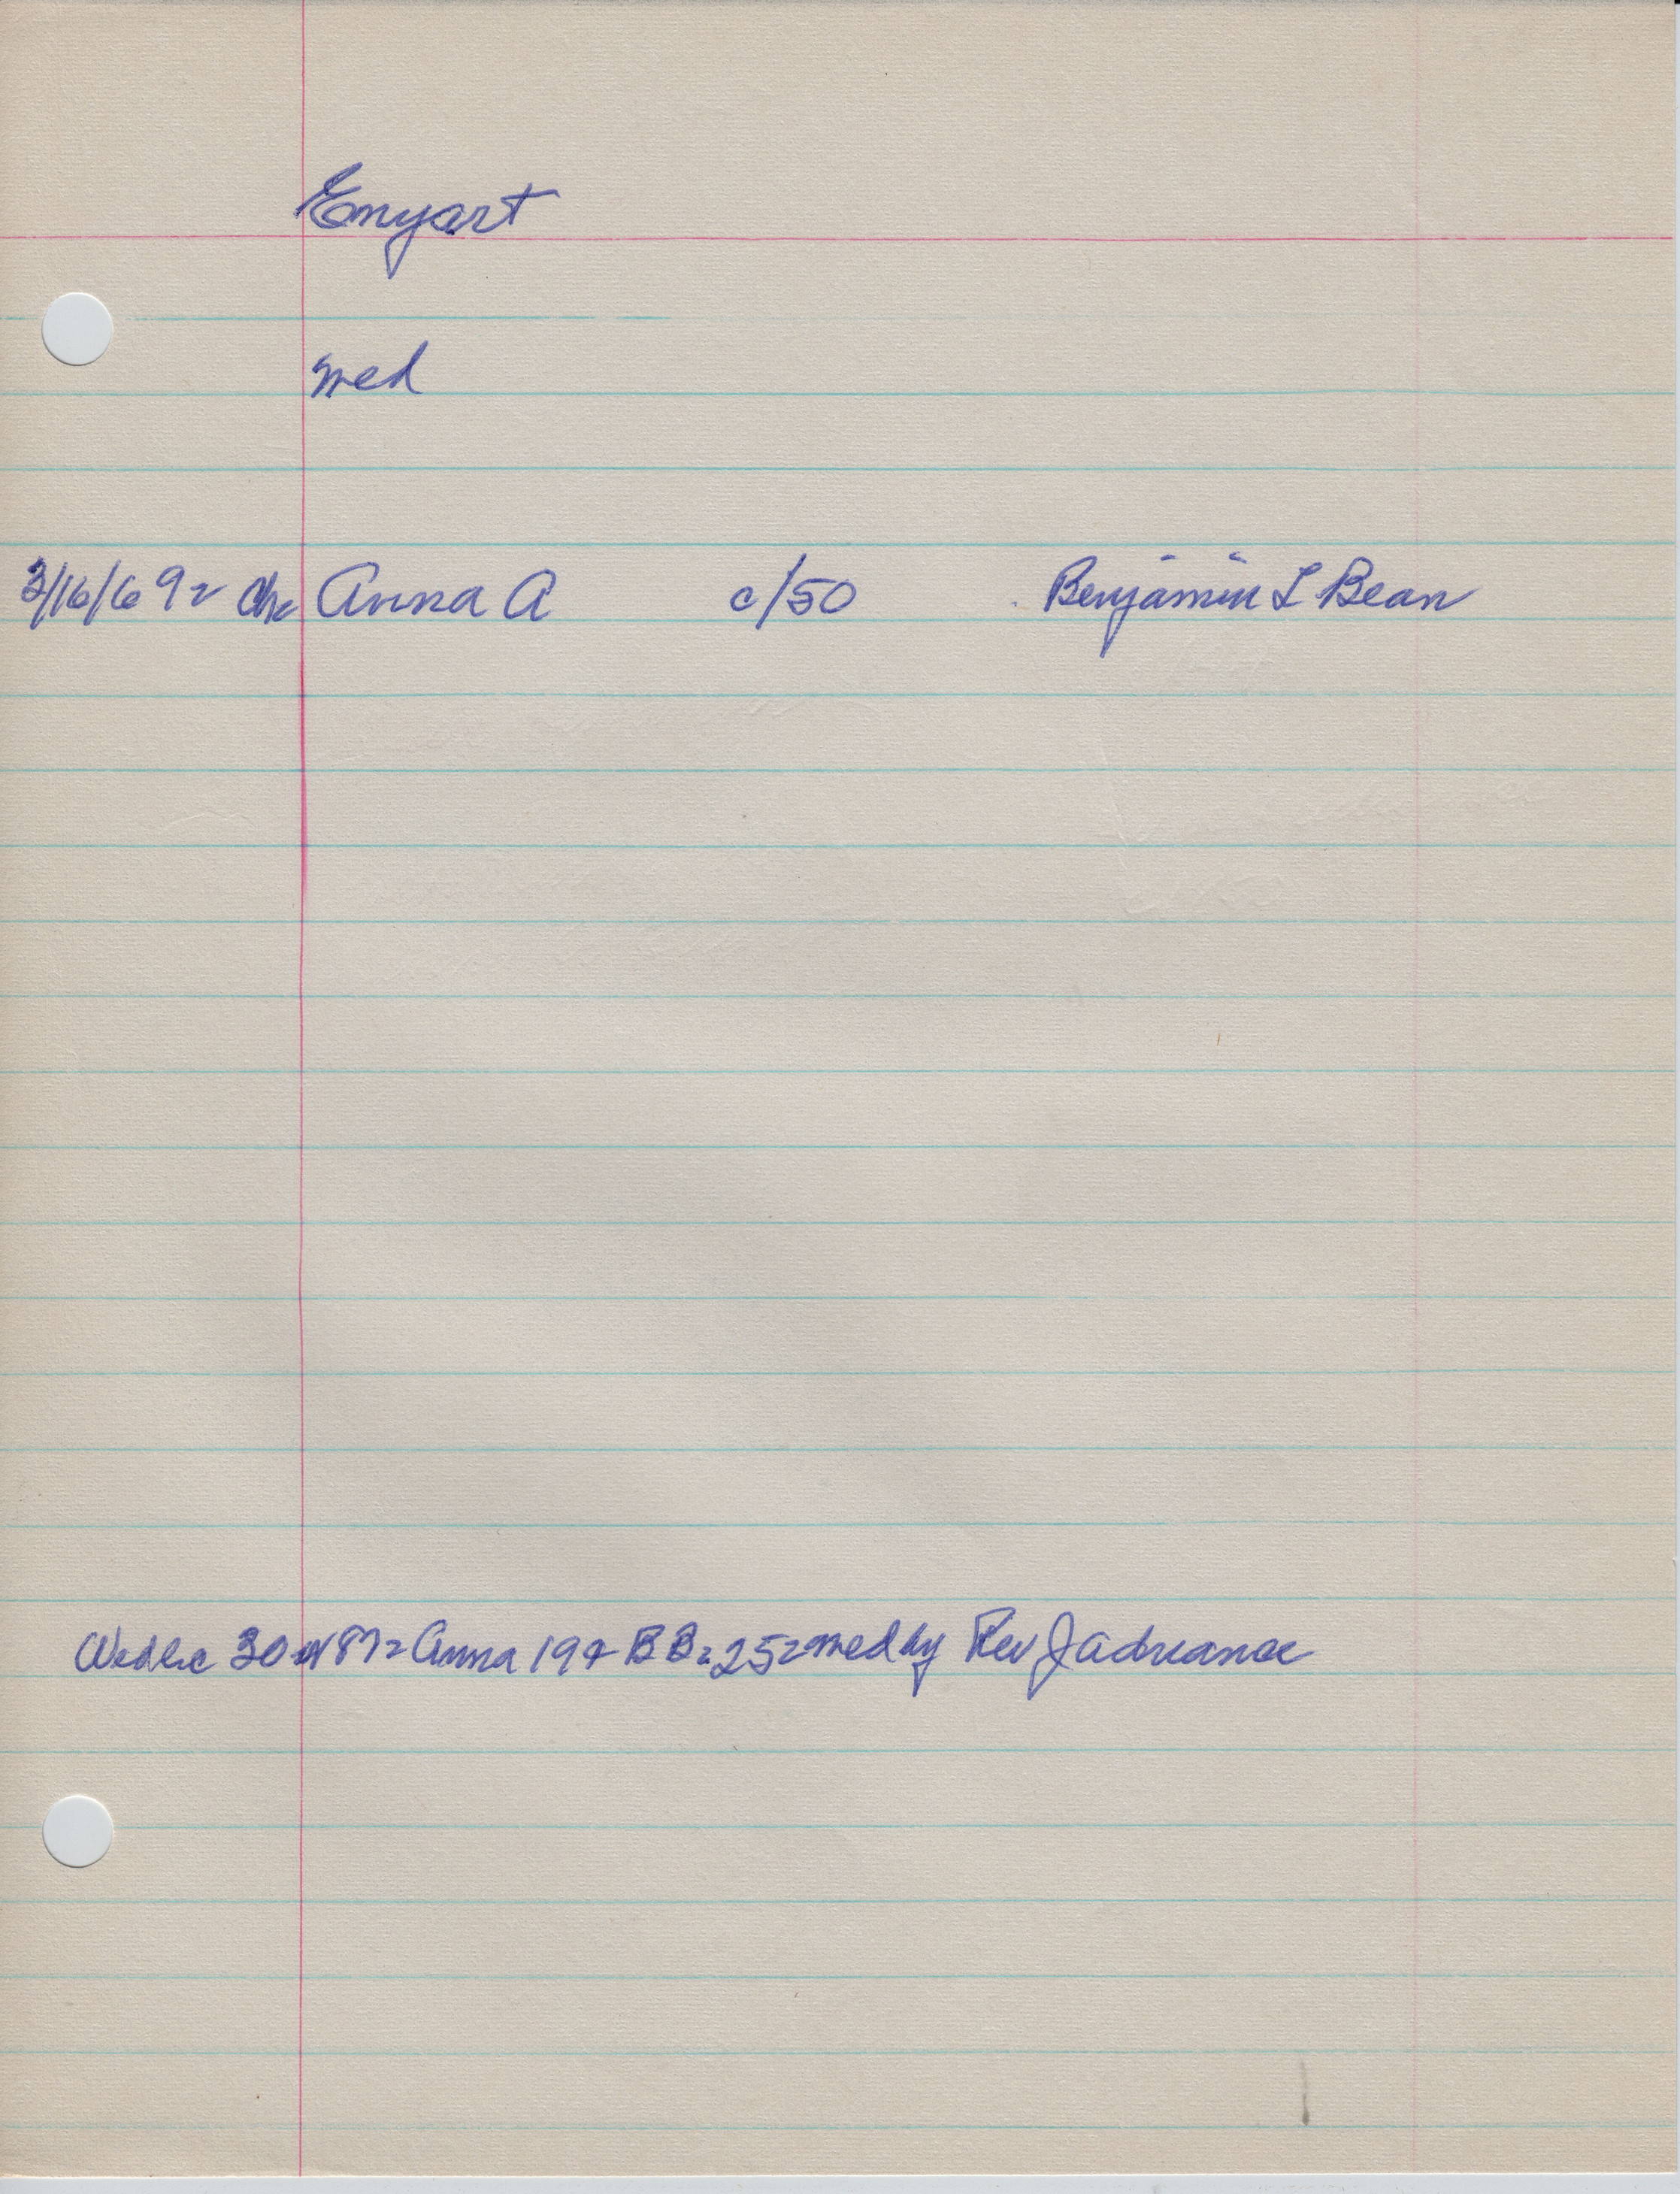 Enyart
med
3/16/69 = Anna A c/50 Benjamin L Bean
30 87 = Anna 19 + BB = 25 = med by Rev J Adriance